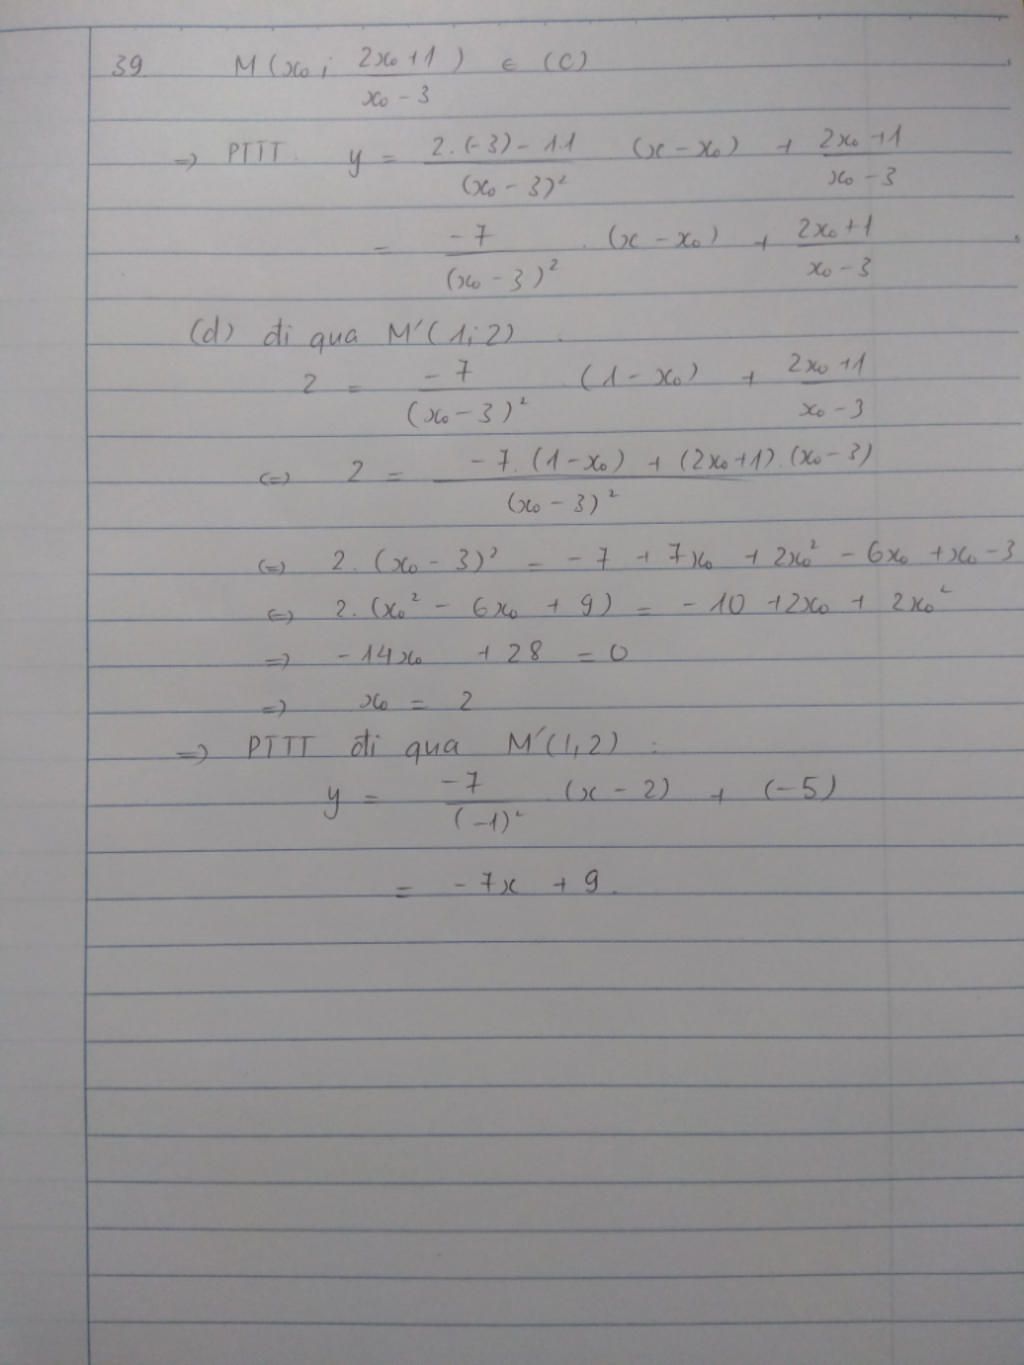 39 M(x₀; (2x₀+1)/(x₀-3)) ∈ (C)
=> PTTT. y = (2.(-3) - 1.1)/(x₀-3)² (x-x₀) + (2x₀+1)/(x₀-3)
= -7/(x₀-3)² . (x-x₀) + (2x₀+1)/(x₀-3)
(d) đi qua M'(1;2)
2 = -7/(x₀-3)² . (1-x₀) + (2x₀+1)/(x₀-3)
<=> 2 = (-7.(1-x₀) + (2x₀+1).(x₀-3))/(x₀-3)²
<=> 2.(x₀-3)² = -7 + 7x₀ + 2x₀² - 6x₀ + x₀ - 3
<=> 2.(x₀² - 6x₀ + 9) = -10 + 2x₀ + 2x₀²
=> -14x₀ + 28 = 0
=> x₀ = 2
=> PTTT đi qua M'(1,2) :
y = -7/(-1)² . (x-2) + (-5)
= -7x + 9.